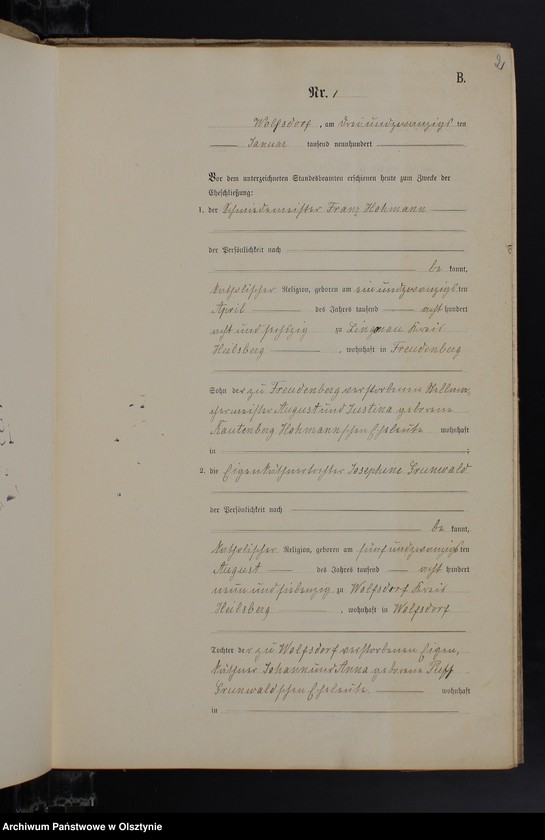 2
B.
Nr. 1
Wolfsdorf, am dreiundzwanzigs ten
Januar tausend neunhundert
Vor dem unterzeichneten Standesbeamten erschienen heute zum Zwecke der
Eheschließung:
1. der Schmiedemeister Franz Hohmann
der Persönlichkeit nach
be kannt,
katholischer Religion, geboren am einundzwanzigs ten
April des Jahres tausend acht hundert
acht und sechszig zu Lingnau Kreis
Heilsberg, wohnhaft in Freudenberg
Sohn der zu Freudenberg verstorbenen Stellma-
chermeister August und Justina geborene
Rautenberg Hohmann'schen Eheleute wohnhaft
in
2. die Eigenkäthnertochter Josephine Grunwald
der Persönlichkeit nach
be kannt,
katholischer Religion, geboren am fünfundzwanzigs ten
August des Jahres tausend acht hundert
neun und siebenzig zu Wolfsdorf Kreis
Heilsberg, wohnhaft in Wolfsdorf
Tochter der zu Wolfsdorf verstorbenen Eigen-
käthner Johann und Anna geborene
Grunwald'schen Eheleute wohnhaft
in
Archiwum Państwowe w Olsztynie